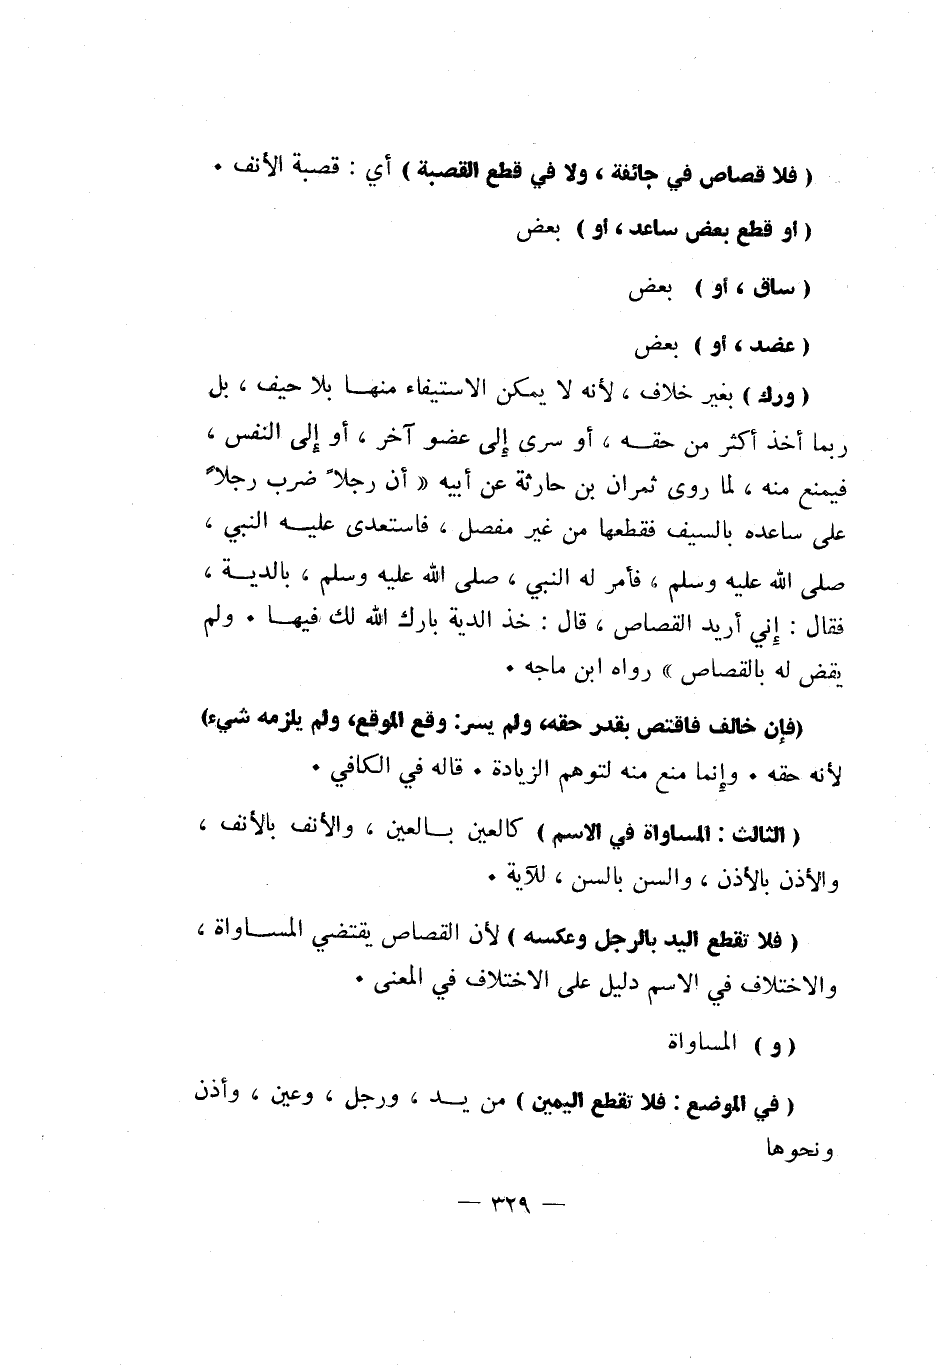 ( فلا قصاص في جائفة ، ولا في قطع القصبة ) أي : قصبة الأنف .
( أو قطع بعض ساعد ، أو ) بعض
( ساق ، أو ) بعض
( عضد ، أو ) بعض
( ورك ) بغير خلاف ، لأنه لا يمكن الاستيفاء منهـا بلا حيف ، بل
ربما أخذ أكثر من حقـه ، أو سرى إلى عضو آخر ، أو إلى النفس ،
فيمنع منه ، لما روى ثمران بن حارثة عن أبيه « أن رجلاً ضرب رجلاً
على ساعده بالسيف فقطعها من غير مفصل ، فاستعدى عليـه النبي ،
صلى الله عليه وسلم ، فأمر له النبي ، صلى الله عليه وسلم ، بالديـة ،
فقال : إني أريد القصاص ، قال : خذ الدية بارك الله لك فيهـا . ولم
يقض له بالقصاص » رواه ابن ماجه .
(فإن خالف فاقتص بقدر حقه، ولم يسر: وقع الموقع، ولم يلزمه شيء)
لأنه حقه . وإنما منع منه لتوهم الزيادة . قاله في الكافي .
( الثالث : المساواة في الاسم ) كالعين بـالعين ، والأنف بالأنف ،
والأذن بالأذن ، والسن بالسن ، للآية .
( فلا تقطع اليد بالرجل وعكسه ) لأن القصاص يقتضي المسـاواة ،
والاختلاف في الاسم دليل على الاختلاف في المعنى .
( و ) المساواة
( في الموضع : فلا تقطع اليمين ) من يـد ، ورجل ، وعين ، وأذن
ونحوها
— ٣٢٩ —